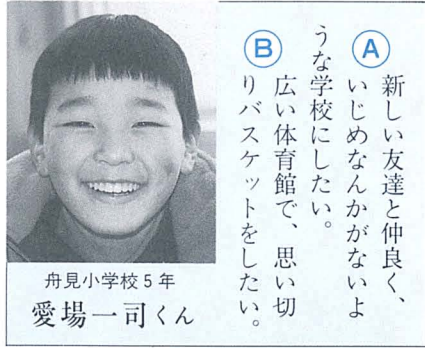 Ⓐ新しい友達と仲良く、
いじめなんかがないよ
うな学校にしたい。
Ⓑ広い体育館で、思い切
りバスケットをしたい。
舟見小学校5年
愛場一司くん